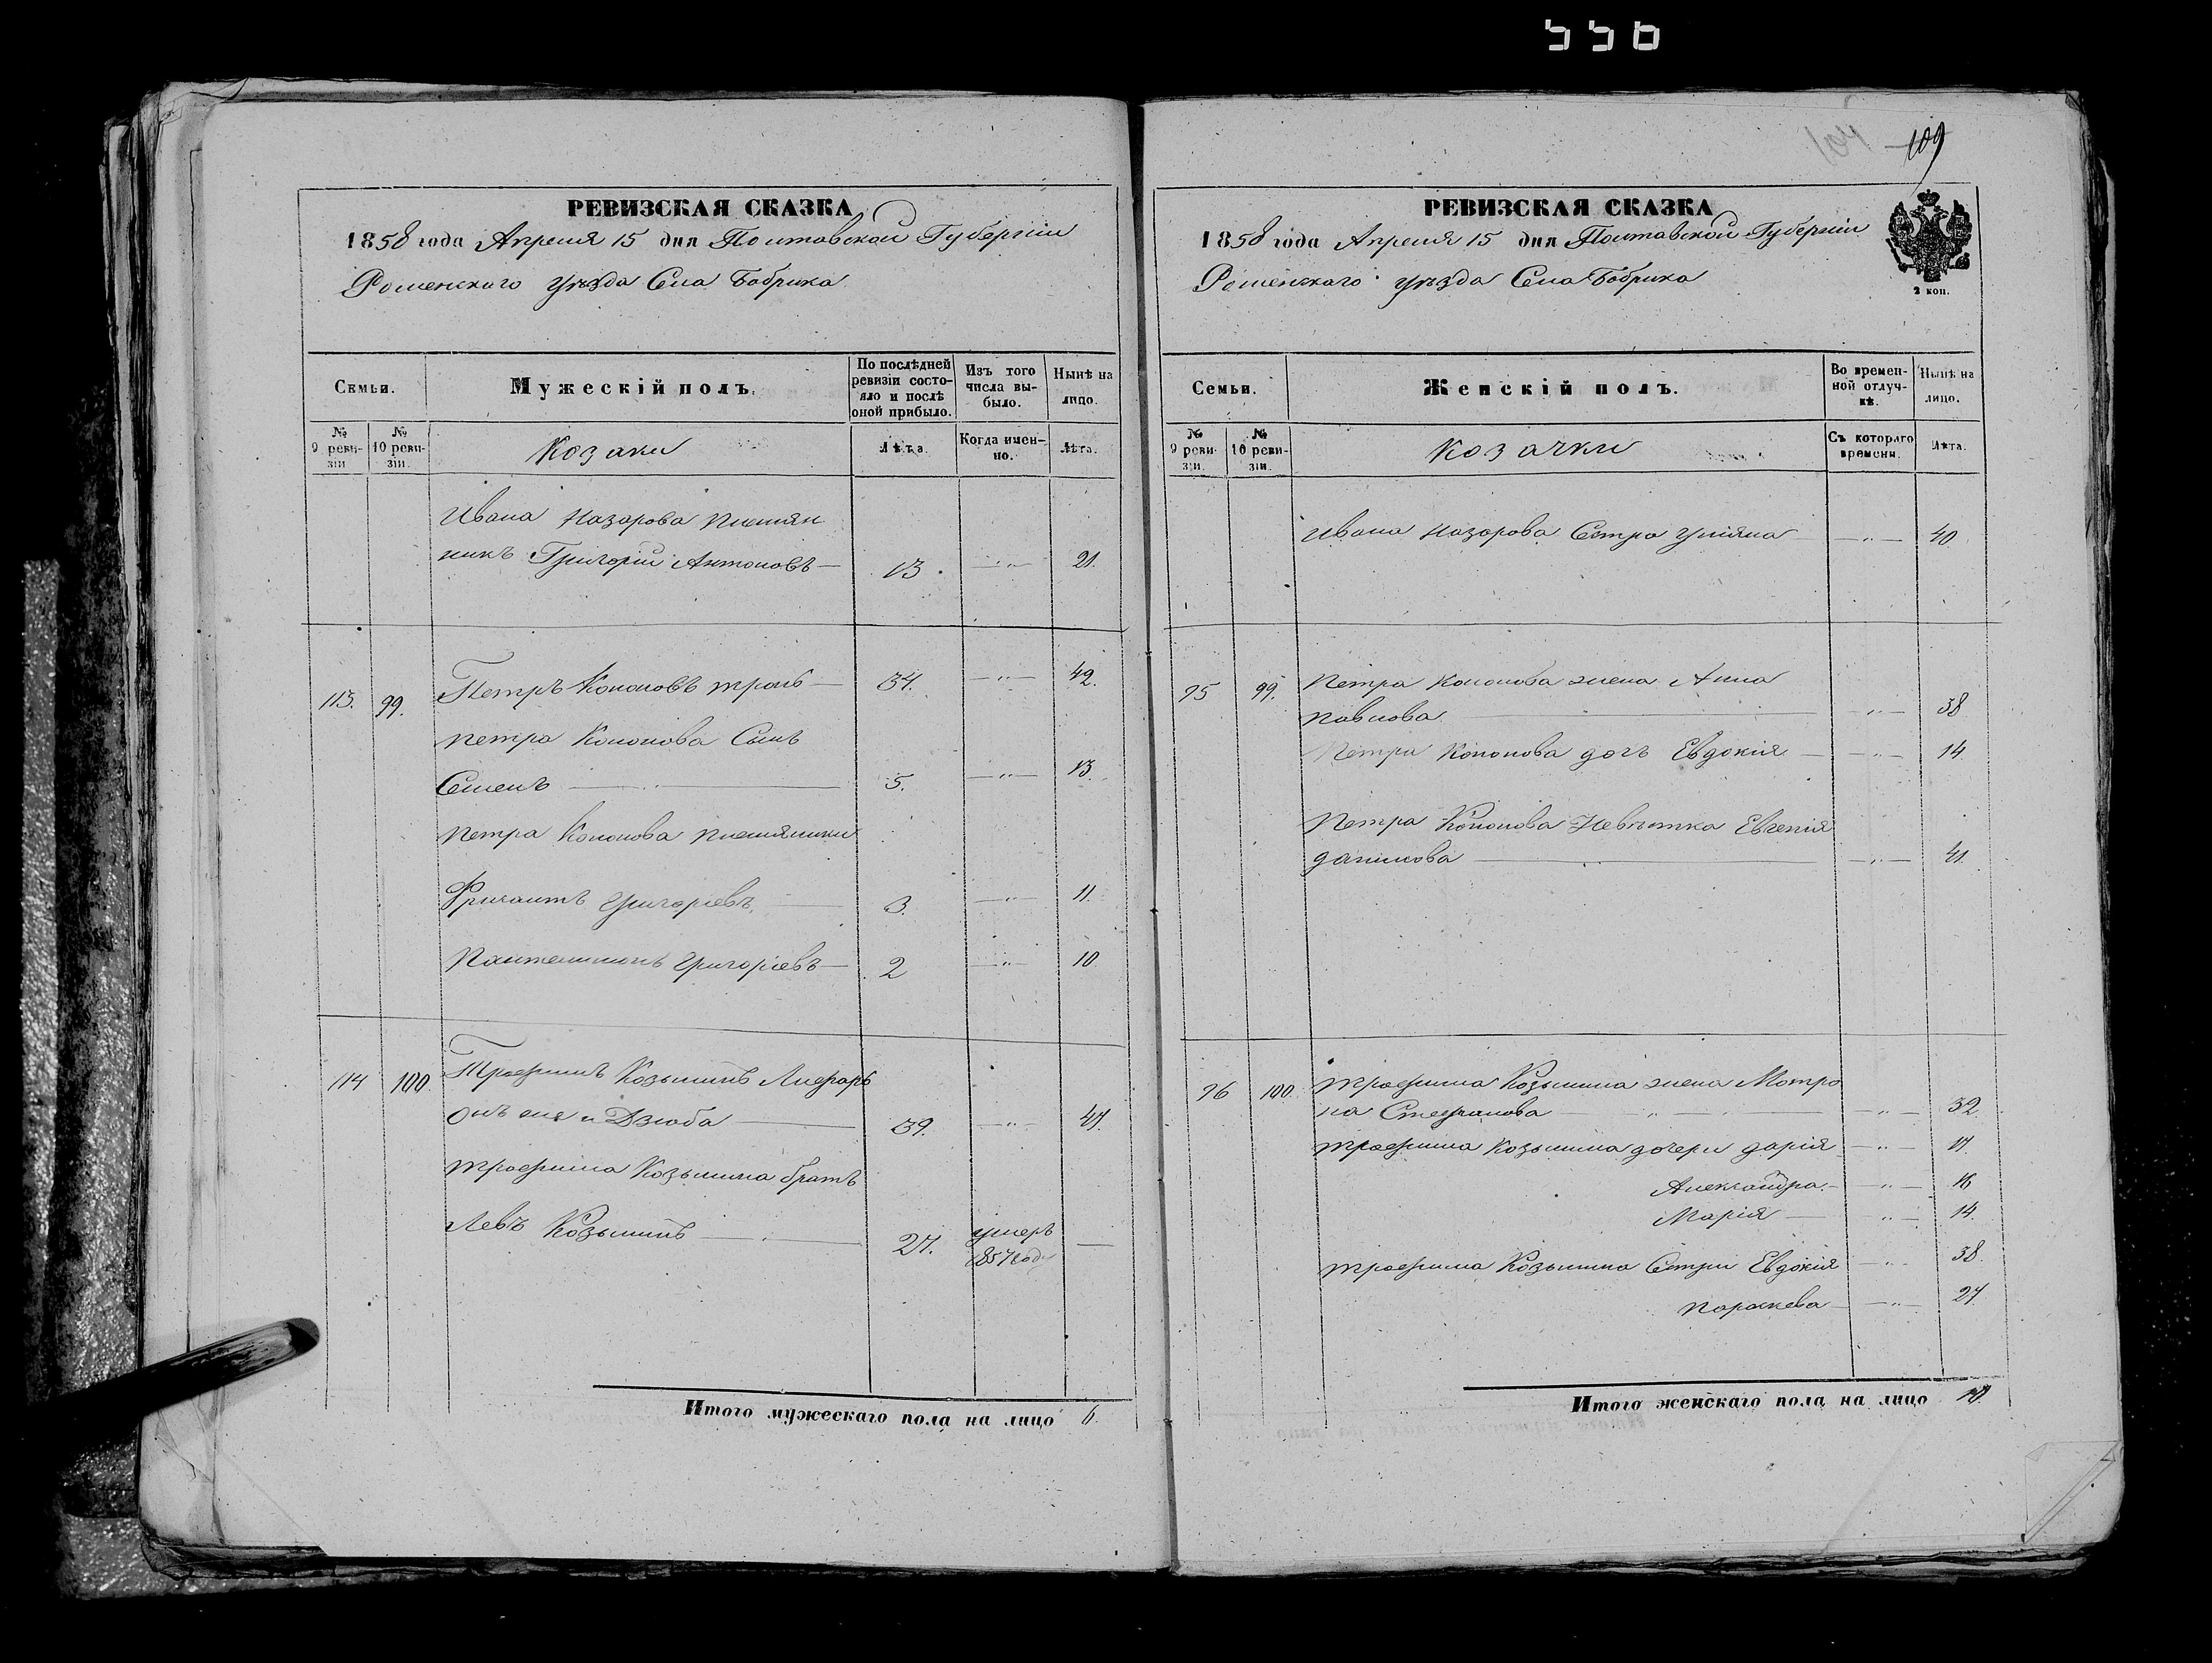 556
109
РЕВИЗСКАЯ СКАЗКА
1858 года Апреля 15 дня Полтавской Губерніи
Роменского уѣзда Села Бобрика
Семьи.
Мужескій полъ.
По послѣдней ревизіи состояло и послѣ оной прибыло.
Изъ того числа выбыло.
Нынѣ на лицо.
№ 9 ревизіи
№ 10 ревизіи.
Козаки
Лѣта.
Когда именно.
Лѣта.
Ивана Назарова племян
никъ Григорій Антоновъ 13. 21.
113. 99. Петръ Кононовъ 34. 42.
Петра Кононова Сынъ
Семенъ 5. 13.
Петра Кононова племяники
Григоріевъ 3. 11.
Пантелимонъ Григоріевъ 2 10
114 100. Трофимъ Козьминъ
онъ же и Дзюба 39. 47.
Трофима Козьмина братъ
Левъ Козьминъ 27. умеръ
1857 год
Итого мужескаго пола на лицо 6.
РЕВИЗСКАЯ СКАЗКА
1858 года Апреля 15 дня Полтавской Губерніи
Роменского уѣзда Села Бобрика
2 коп.
Семьи.
Женскій полъ.
Во временной отлучкѣ.
Нынѣ на лицо.
№ 9 ревизіи.
№ 10 ревизіи.
Козачки
Съ котораго времени.
Лѣта.
Ивана Назарова Сетра Уліяна 40
95 99. Петра Кононова жена Анна
Павлова 38
Петра Кононова дочь Евдокія 14.
Петра Кононова Невѣстка Евгенія
данилова 41
96 100. Трофима Козьмина жена Мотро
на Стефанова 32.
Трофима Козьмина дочери дарія 17.
Александра 16
Марія 14.
Трофима Козьмина Сетри Евдокія 38.
Параскева 27.
Итого женскаго пола на лицо 10.